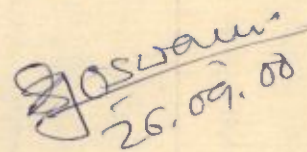 Goswami
26.09.00